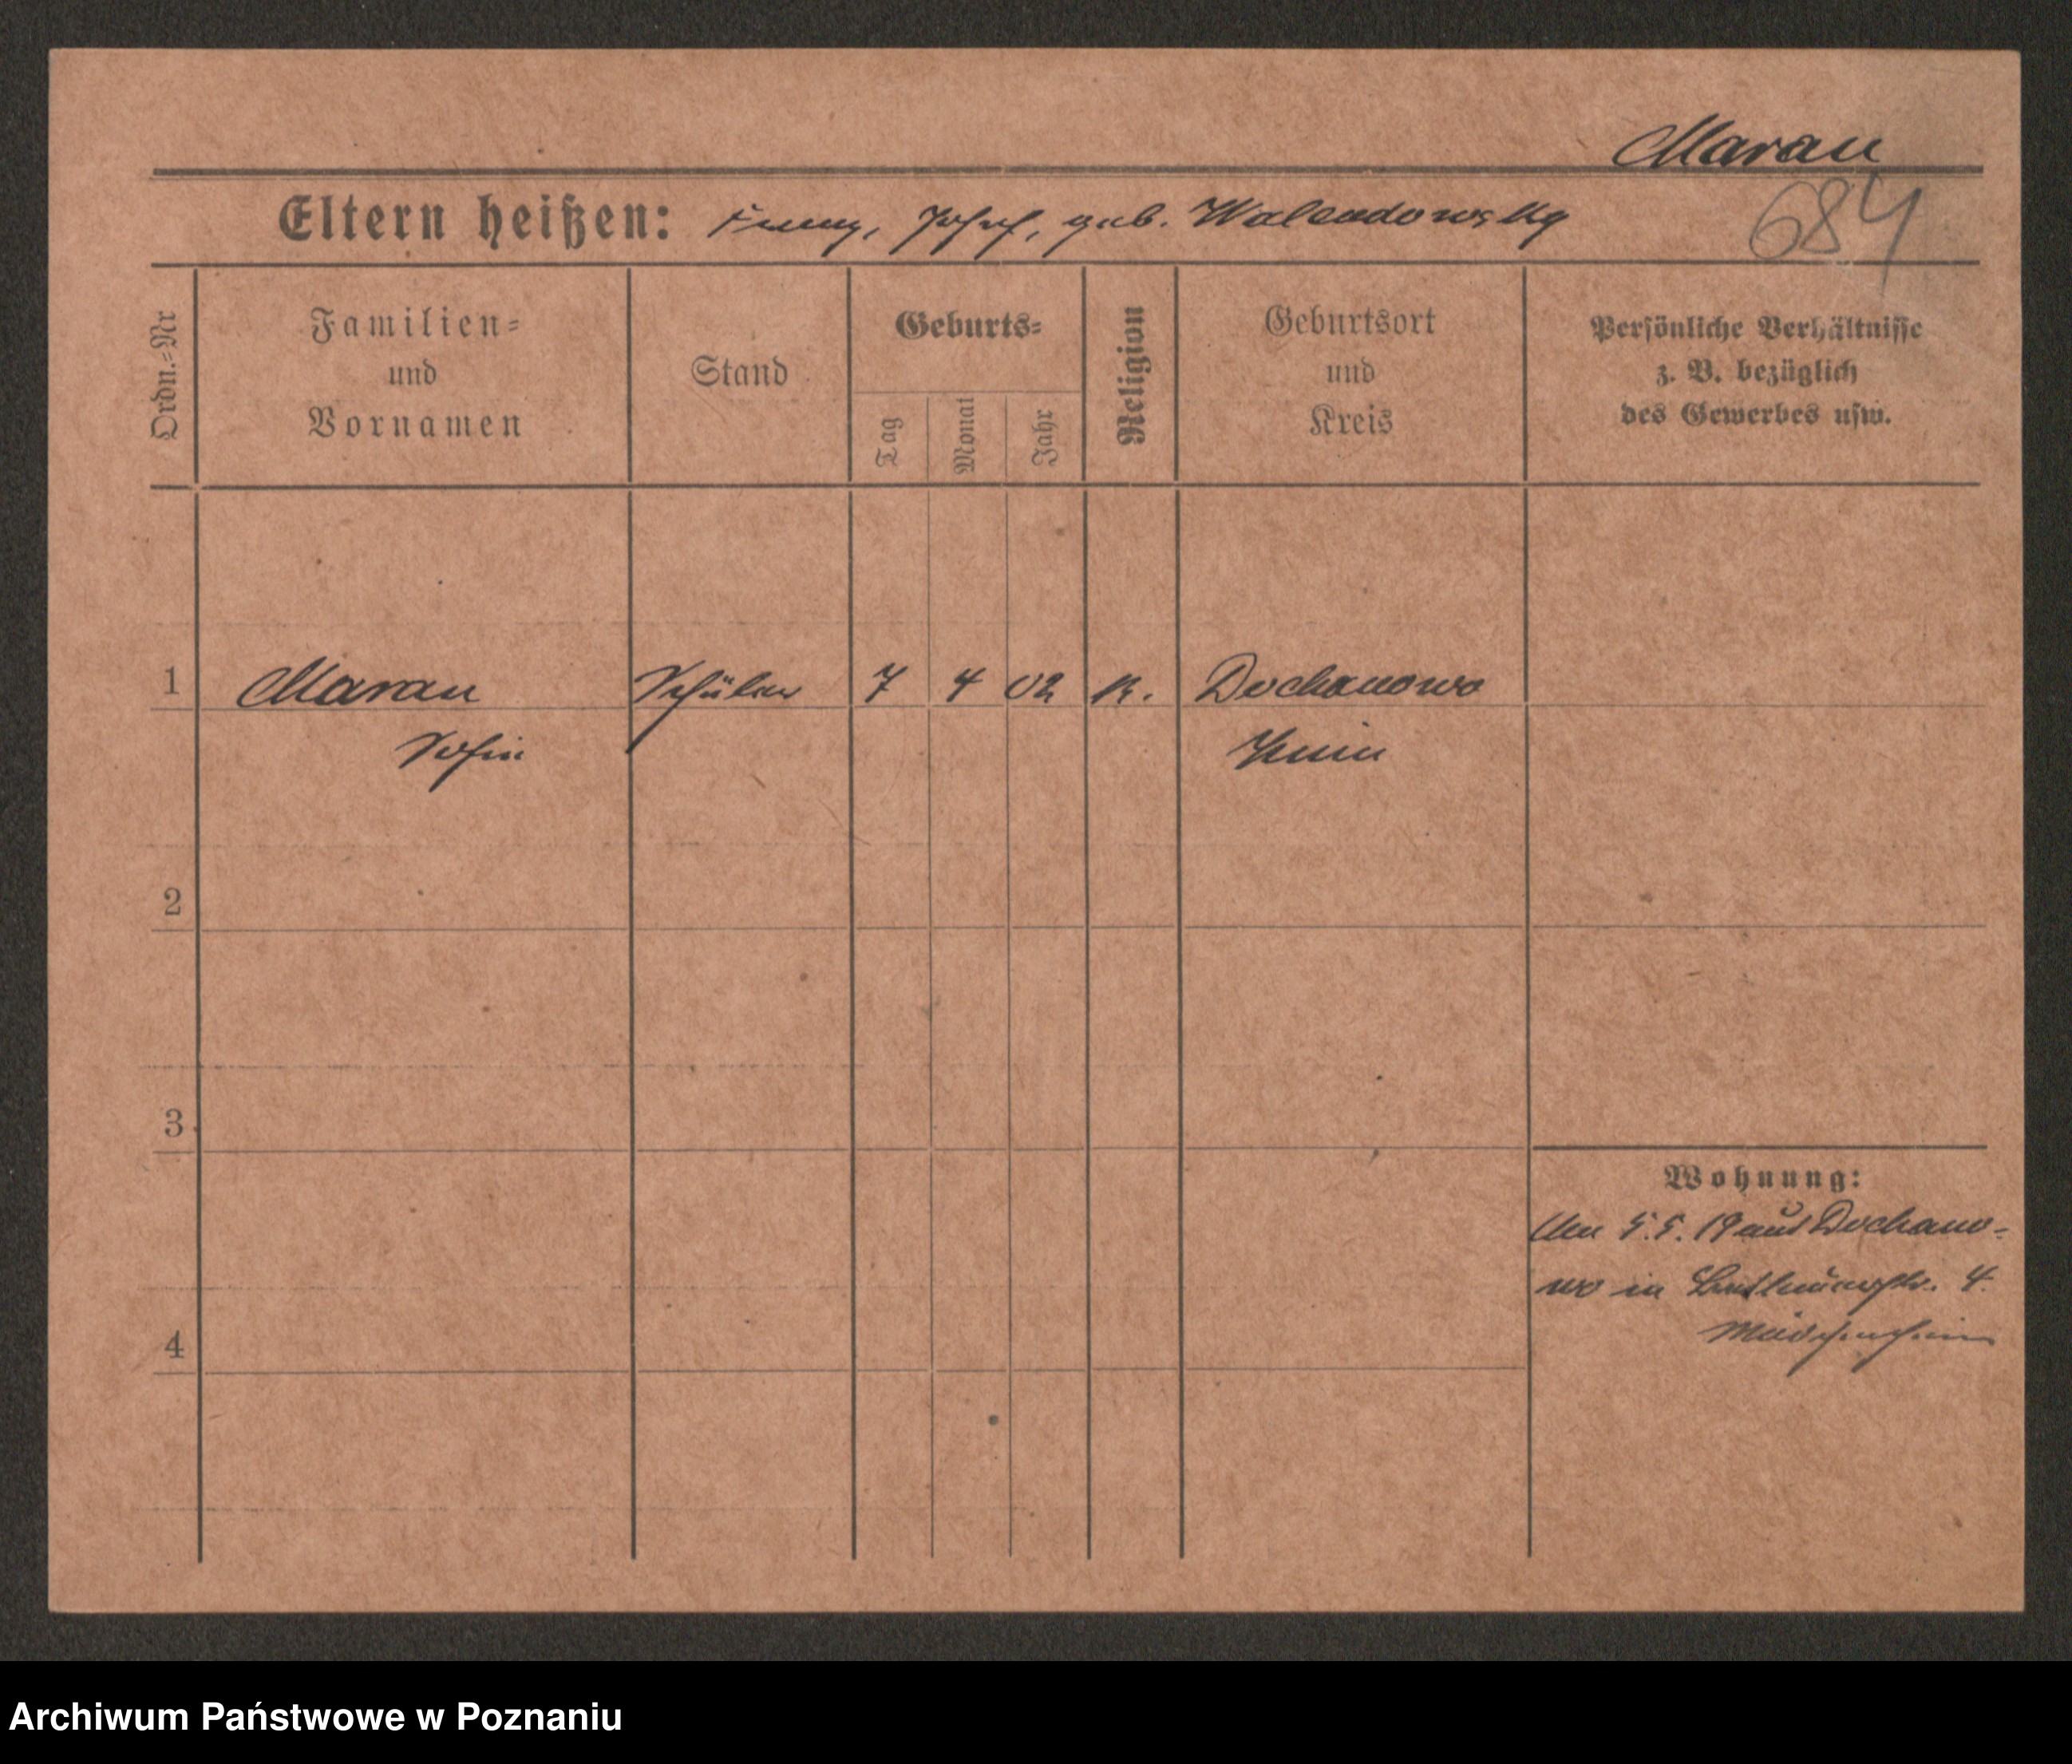 Marau
Eltern heißen: Franz, Josef, geb. Walendowsky
684
Ordn.-Nr
Familien-
und
Vornamen
Stand
Geburts-
Tag
Monat
Jahr
Religion
Geburtsort
und
Kreis
Persönliche Verhältnisse
z. B. bezüglich
des Gewerbes usw.
1 Marau Schüler 7 4 02 K. Dochanowo
Sofie Znin
2
3
Wohnung:
Am 5.5.19 aus Dochano-
wo in 4.
4
Archiwum Państwowe w Poznaniu